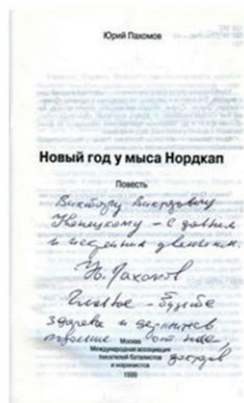 Юрий Пахомов
Новый год у мыса Нордкап
Повесть
Виктору Викторовичу
Конецкому – с давним
и искренним уважением.
Ю. Пахомов
Главное – будьте
здоровы и держитесь
подальше от нас,
докторов
Москва
Международная ассоциация
писателей баталистов
и маринистов
1999